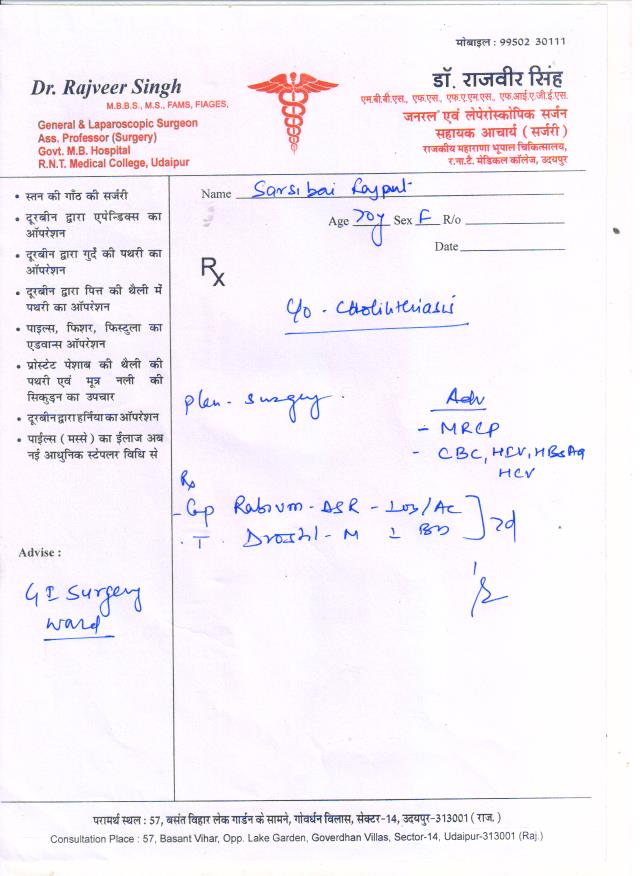 मोबाइल : 99502 30111
Dr. Rajveer Singh
M.B.B.S., M.S., FAMS, FIAGES,
General & Laparoscopic Surgeon
Ass. Professor (Surgery)
Govt. M.B. Hospital
R.N.T. Medical College, Udaipur
डॉ. राजवीर सिंह
एम.बी.बी.एस., एफ.एस., एफ.ए.एम.एस., एफ.आई.ए.जी.ई.एस.
जनरल एवं लेपेरोस्कोपिक सर्जन
सहायक आचार्य (सर्जरी)
राजकीय महाराणा भूपाल चिकित्सालय,
र.ना.टै. मेडिकल कॉलेज, उदयपुर
• स्तन की गाँठ की सर्जरी
• दूरबीन द्वारा एपेन्डिक्स का
ऑपरेशन
• दूरबीन द्वारा गुर्दे की पथरी का
ऑपरेशन
• दूरबीन द्वारा पित्त की थैली में
पथरी का ऑपरेशन
• पाइल्स, फिशर, फिस्टुला का
एडवान्स ऑपरेशन
• प्रोस्टेट पेशाब की थैली की
पथरी एवं मूत्र नली की
सिकुड़न का उपचार
• दूरबीन द्वारा हर्निया का ऑपरेशन
• पाईल्स (मस्से) का ईलाज अब
नई आधुनिक स्टेपलर विधि से
Advise :
GI Surgery
Ward
Name Sarsibai Rajput
Age 70y Sex F R/o
Date
Rx
c/o - Cholilithiasis
Plan - Surgery .
Adv
- MRCP
- CBC, HCV, HBsAg
HCV
Rx
- Cap Rabium - DSR - 1 OD/AC
. T. Drostil - M 1 BD
7d
परामर्थ स्थल : 57, बसंत विहार लेक गार्डन के सामने, गोवर्धन विलास, सेक्टर-14, उदयपुर-313001 ( राज. )
Consultation Place : 57, Basant Vihar, Opp. Lake Garden, Goverdhan Villas, Sector-14, Udaipur-313001 (Raj.)